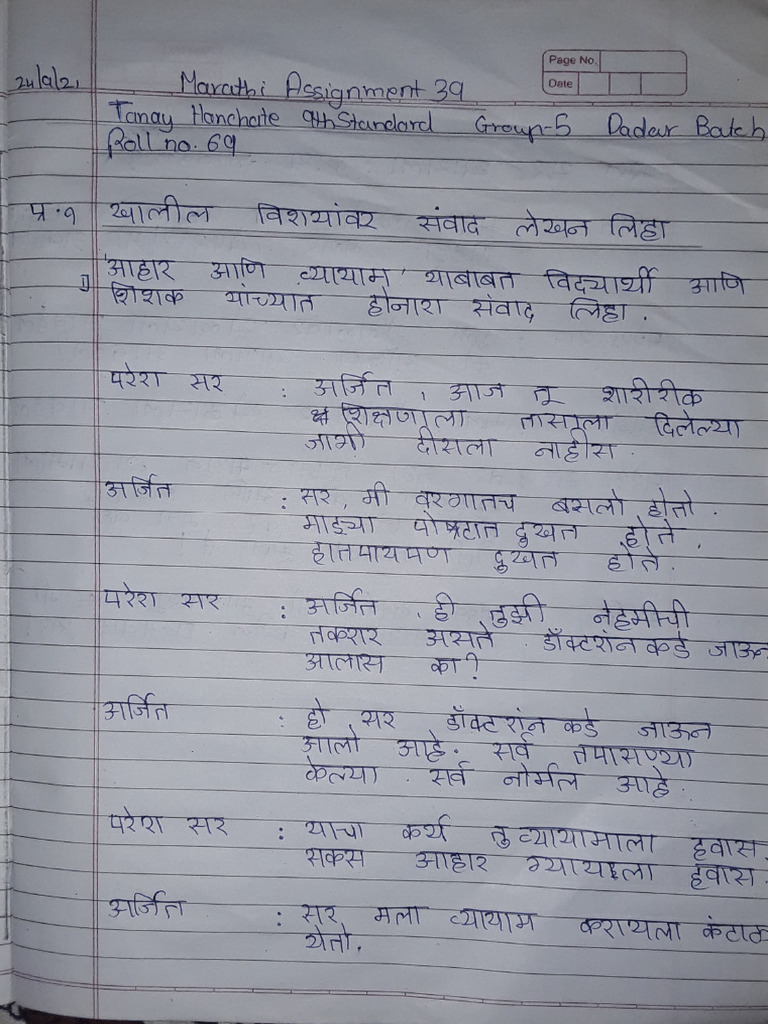 Page No.
Date
24/9/21 Marathi Assignment 39
Tanay Hanchate 9th Standard Group-5 Dadar Batch
Roll no. 69
प्र.१ खालील विशयांवर संवाद लेखन लिहा
1) 'आहार आणि व्यायाम' याबाबत विद्यार्थी आणि
शिशक यांच्यात होनारा संवाद लिहा.
परेरा सर : अर्जित, आज तू शारीरीक
शिक्षणाला तासाला दिलेल्या
जागी दीसला नाहीस.
अर्जित : सर, मी वरगातच बसलो होतो.
माझ्या पोटात दुखत होते.
हातपायपण दुखत होते.
परेरा सर : अर्जित, ही तुझी नेहमीची
तकरार असते. डॉक्टरांन कडे जाऊन
आलास का?
अर्जित : हो सर डॉक्टरांन कडे जाऊन
आलो आहे. सर्व तपासण्या
केल्या. सर्व नोर्मल आहे.
परेरा सर : याचा कर्थ तु व्यायामाला हवास.
सकस आहार ग्यायला हवास.
अर्जित : सर, मला व्यायाम करायला कंटाळ
येतो.